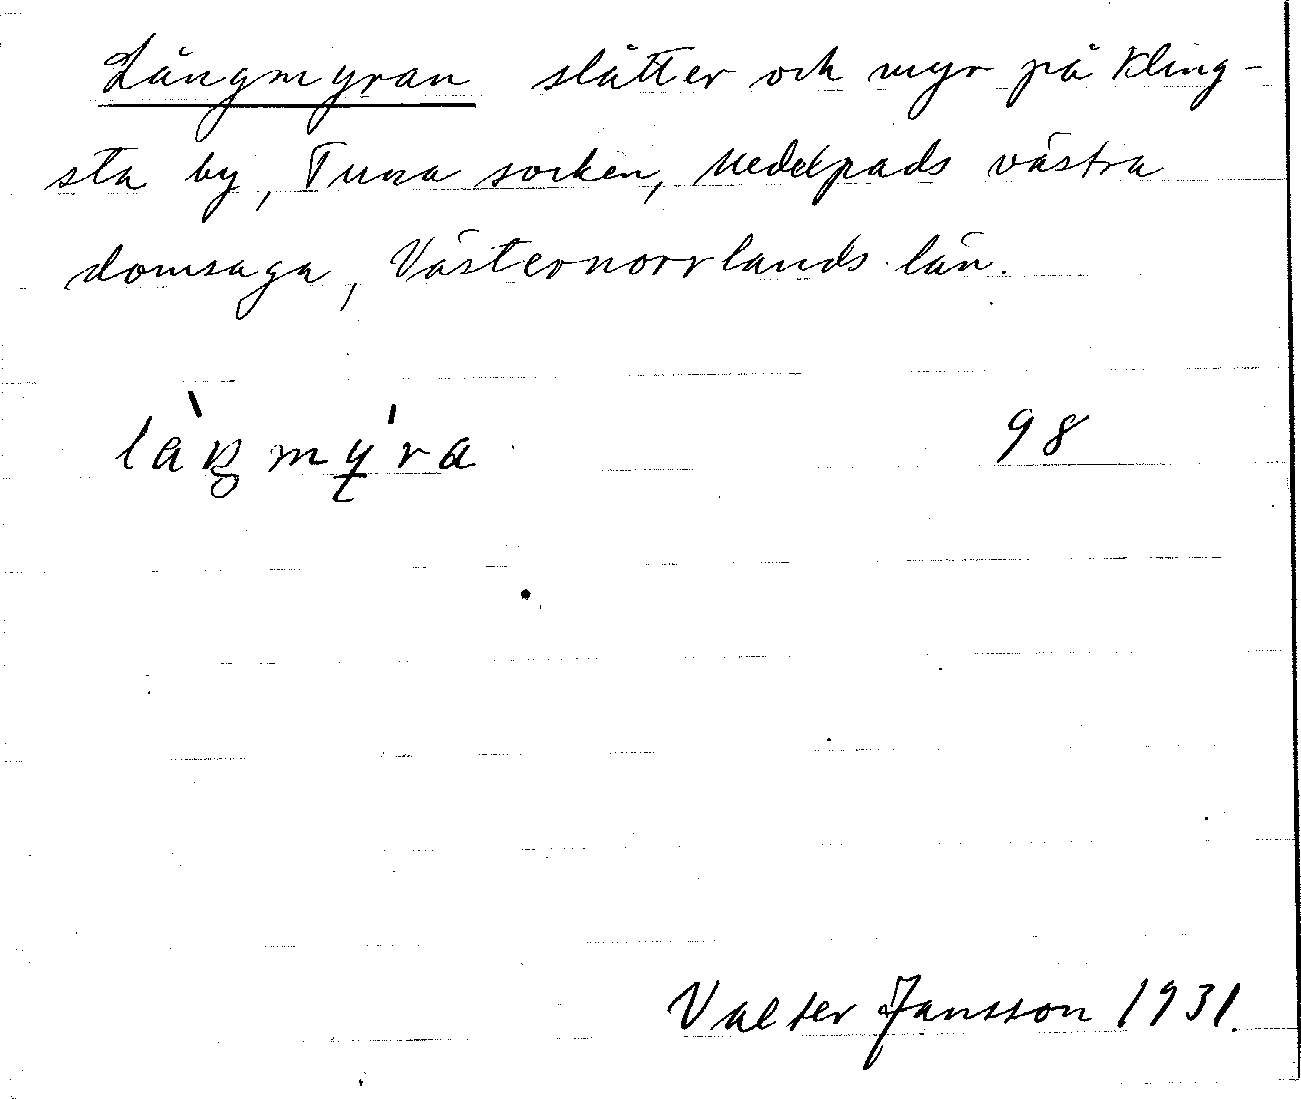 Långmyran slåtter och myr på Kling-
sta by, Tuna socken, Medelpads västra
domsaga, Västernorrlands län.
98
Valter Jansson 1931.